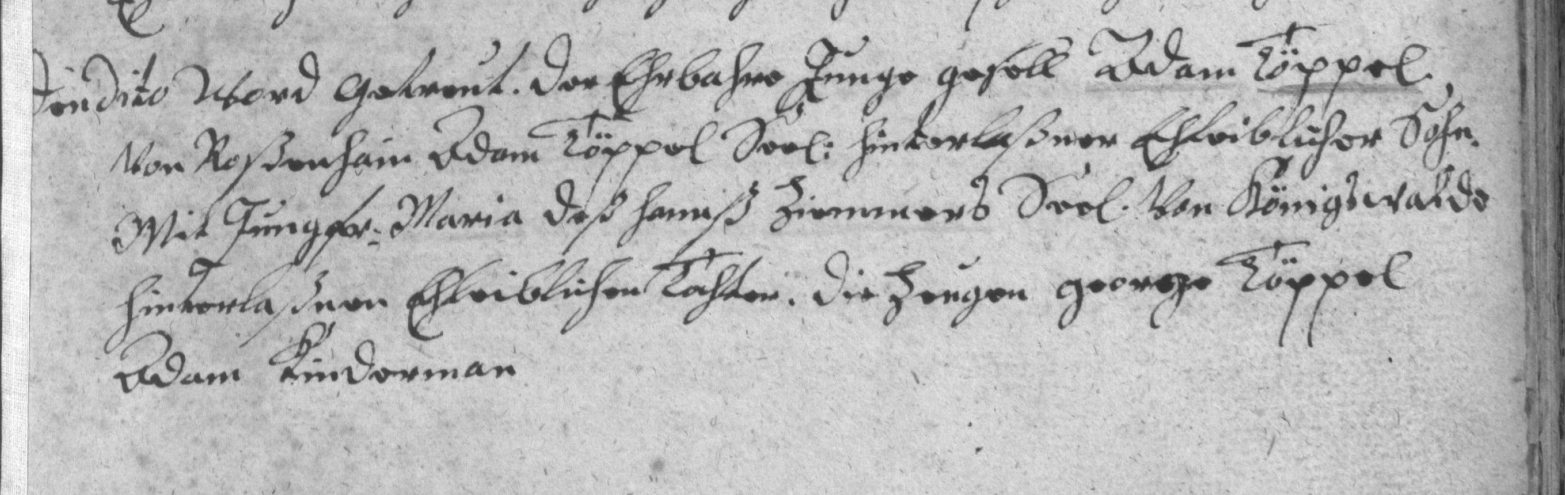 Den dito Word Getreut. der Ehrbahre Junge gesell Adam Töppel
Von Roßenhain Adam Töppel Seel: hinterlaßner Ehleiblicher Sohn.
Mit Jungfr: Maria deß hannß Ziemmers Seel. Von Königswalde
hinterlaßnen Ehleiblichen Tochter. die Zeugen george Töppel
Adam Kinderman